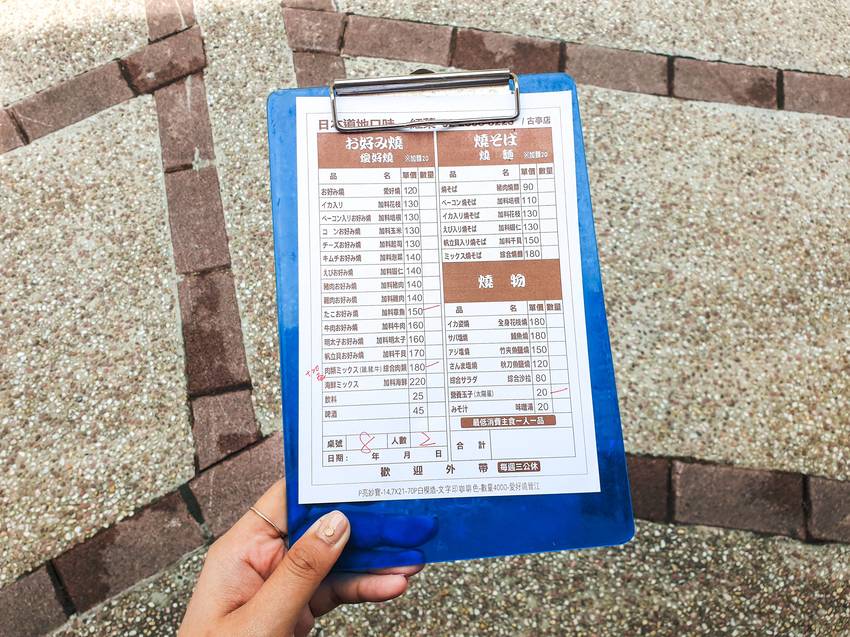 日本道地口味
/ 古亭店
お好み燒
愛好燒 ※加麵20
品 名 單價 數量
お好み燒 愛好燒 120
イカ入り 加料花枝 130
ベーコン入りお好み燒 加料培根 130
コーンお好み燒 加料玉米 130
チーズお好み燒 加料起司 130
キムチお好み燒 加料泡菜 140
えびお好み燒 加料蝦仁 140
豬肉お好み燒 加料豬肉 140
雞肉お好み燒 加料雞肉 140
たこお好み燒 加料章魚 150
牛肉お好み燒 加料牛肉 160
明太子お好み燒 加料明太子 160
帆立貝お好み燒 加料干貝 170
肉類ミックス(雞,豬,牛) 綜合肉類 180
海鮮ミックス 加料海鮮 220
飲料 25
啤酒 45
燒そば
燒 麵 ※加麵20
品 名 單價 數量
燒そば 豬肉燒麵 90
ベーコン燒そば 加料培根 110
イカ入り燒そば 加料花枝 130
えび入り燒そば 加料蝦仁 130
帆立貝入り燒そば 加料干貝 150
ミックス燒そば 綜合燒麵 180
燒 物
品 名 單價 數量
イカ姿燒 全身花枝燒 180
サバ塩燒 鯖魚燒 180
アジ塩燒 竹夾魚鹽燒 150
さんま塩燒 秋刀魚鹽燒 120
綜合サラダ 綜合沙拉 80
營養玉子(太陽蛋) 20
みそ汁 味噌湯 20
最低消費主食一人一品
桌號 8 人數 2 合 計
日期： 年 月 日
歡 迎 外 帶 每週三公休
P亮紗寶-14.7X21-70P白模造-文字印咖啡色-數量4000-愛好燒晉江